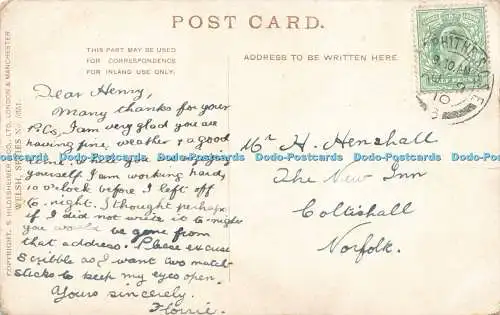 POST CARD.
THIS PART MAY BE USED
FOR CORRESPONDENCE
FOR INLAND USE ONLY.
ADDRESS TO BE WRITTEN HERE.
COPYRIGHT, S. HILDESHEIMER & CO., LTD. LONDON & MANCHESTER.
WELSH, SERIES No.
Dear Henny,
Many thanks for your
P.Cs, I am very glad you are
having fine, weather & a good
time.
yourself. I am working hard,
10 o'clock before I left off
to-night. I thought perhaps
if I did not write it to-night
you would be gone from
that address. Please excuse
scribble as I want two match-
sticks to keep my eyes open.
Yours sincerely.
Florrie.
Mr H. Henshall
The New Inn
Coltishall
Norfolk.
Dodo-Postcards Dodo-Postcards Dodo-Postcards Dodo-Postcards Dodo-Postcards